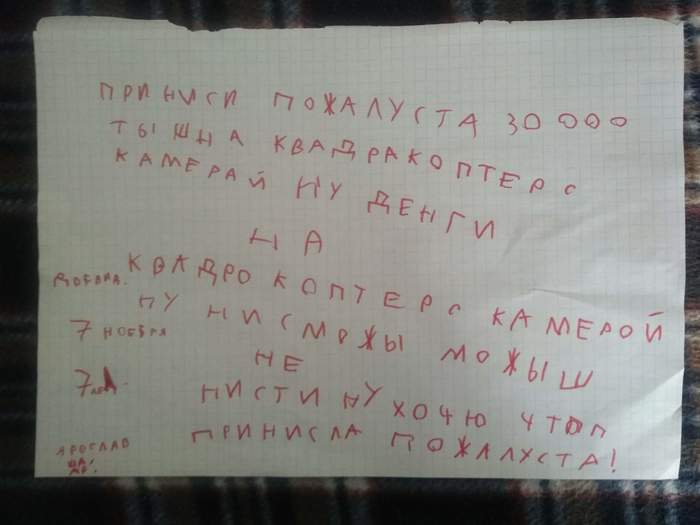 ПРИНИСИ ПОЖАЛУСТА 30 000
ТЫШ НА КВАДРАКОПТЕР С
КАМЕРАЙ НУ ДЕНГИ
НА
КВАДРО КОПТЕР С КАМЕРОЙ
НУ НИСМОЖЫ МОЖЫШ
НЕ
НИСТИ НУ ХОЧЮ ЧТОП
ПРИНИСЛА ПОЖАЛУСТА!
7 НОЯБРЯ
7
ЯРОСЛАВ